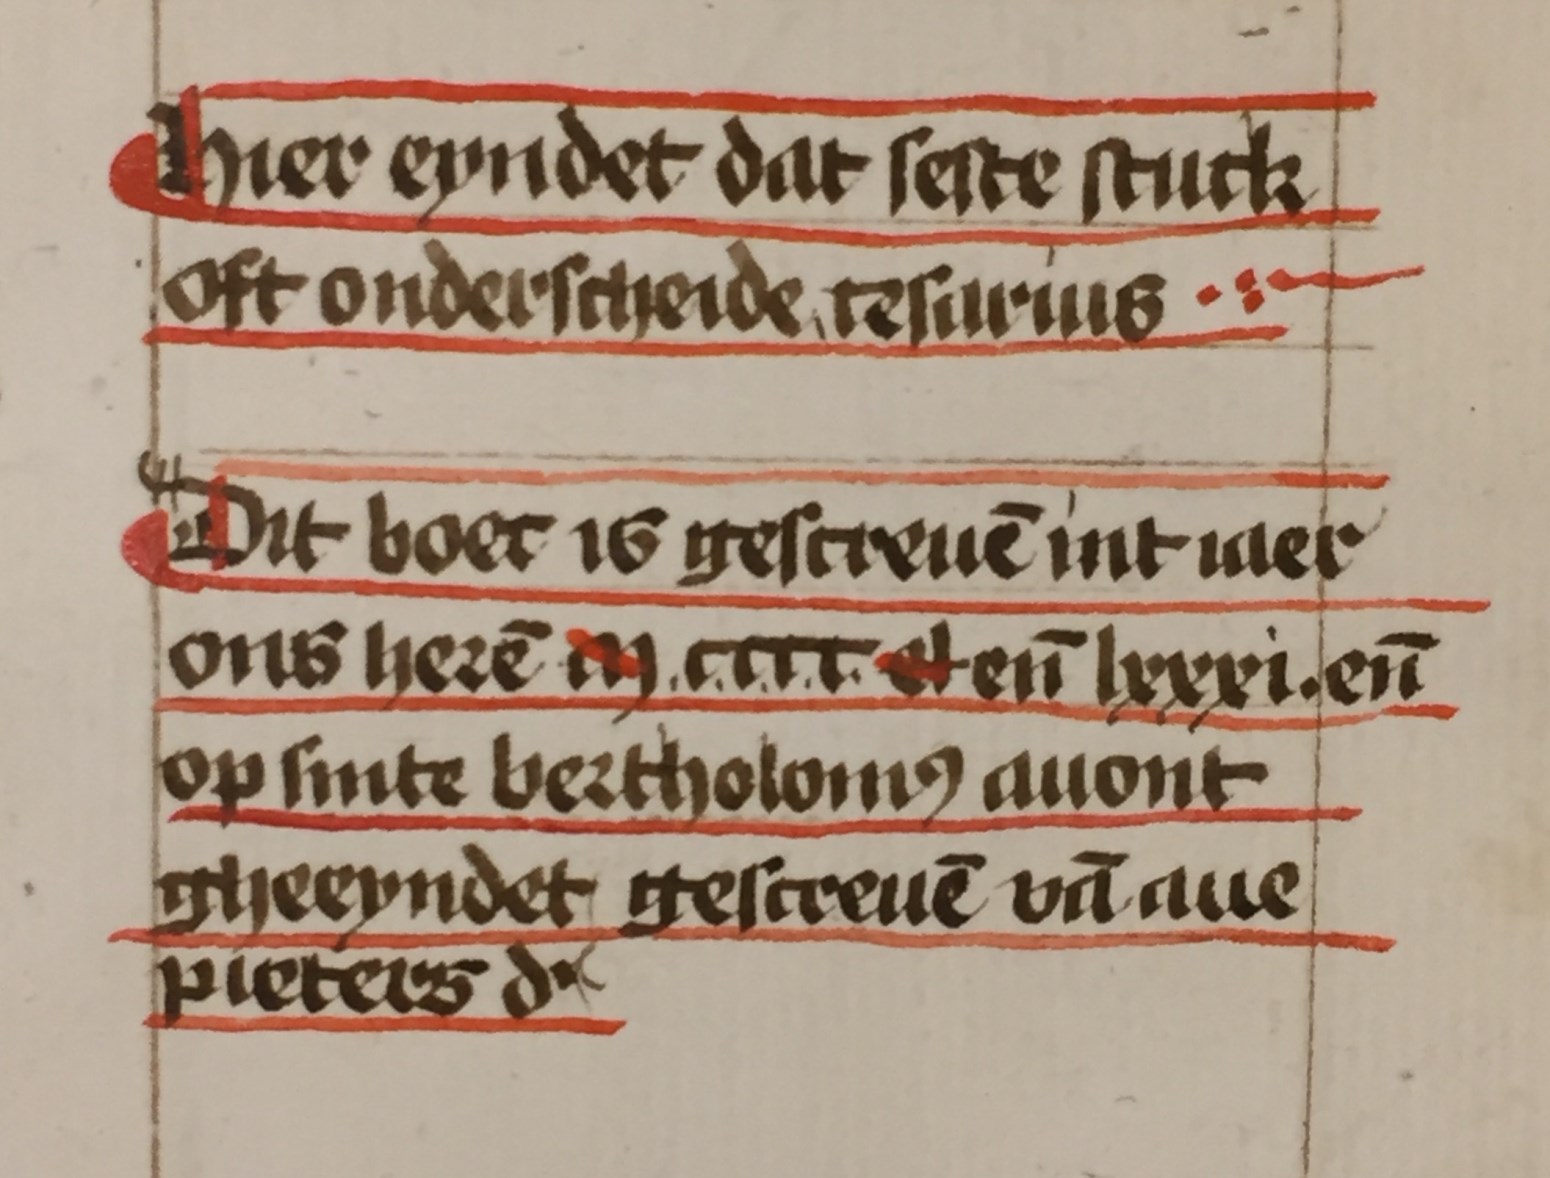 hier eyndet dat seste stuck
oft onderscheide tesarius
Dit boec is gescreuē int iaer
ons herē m.cccc. en̄ lxxxi. en̄
op sinte bertholomꝰ auont
gheeyndet gescreuē vā aue
pieters dr